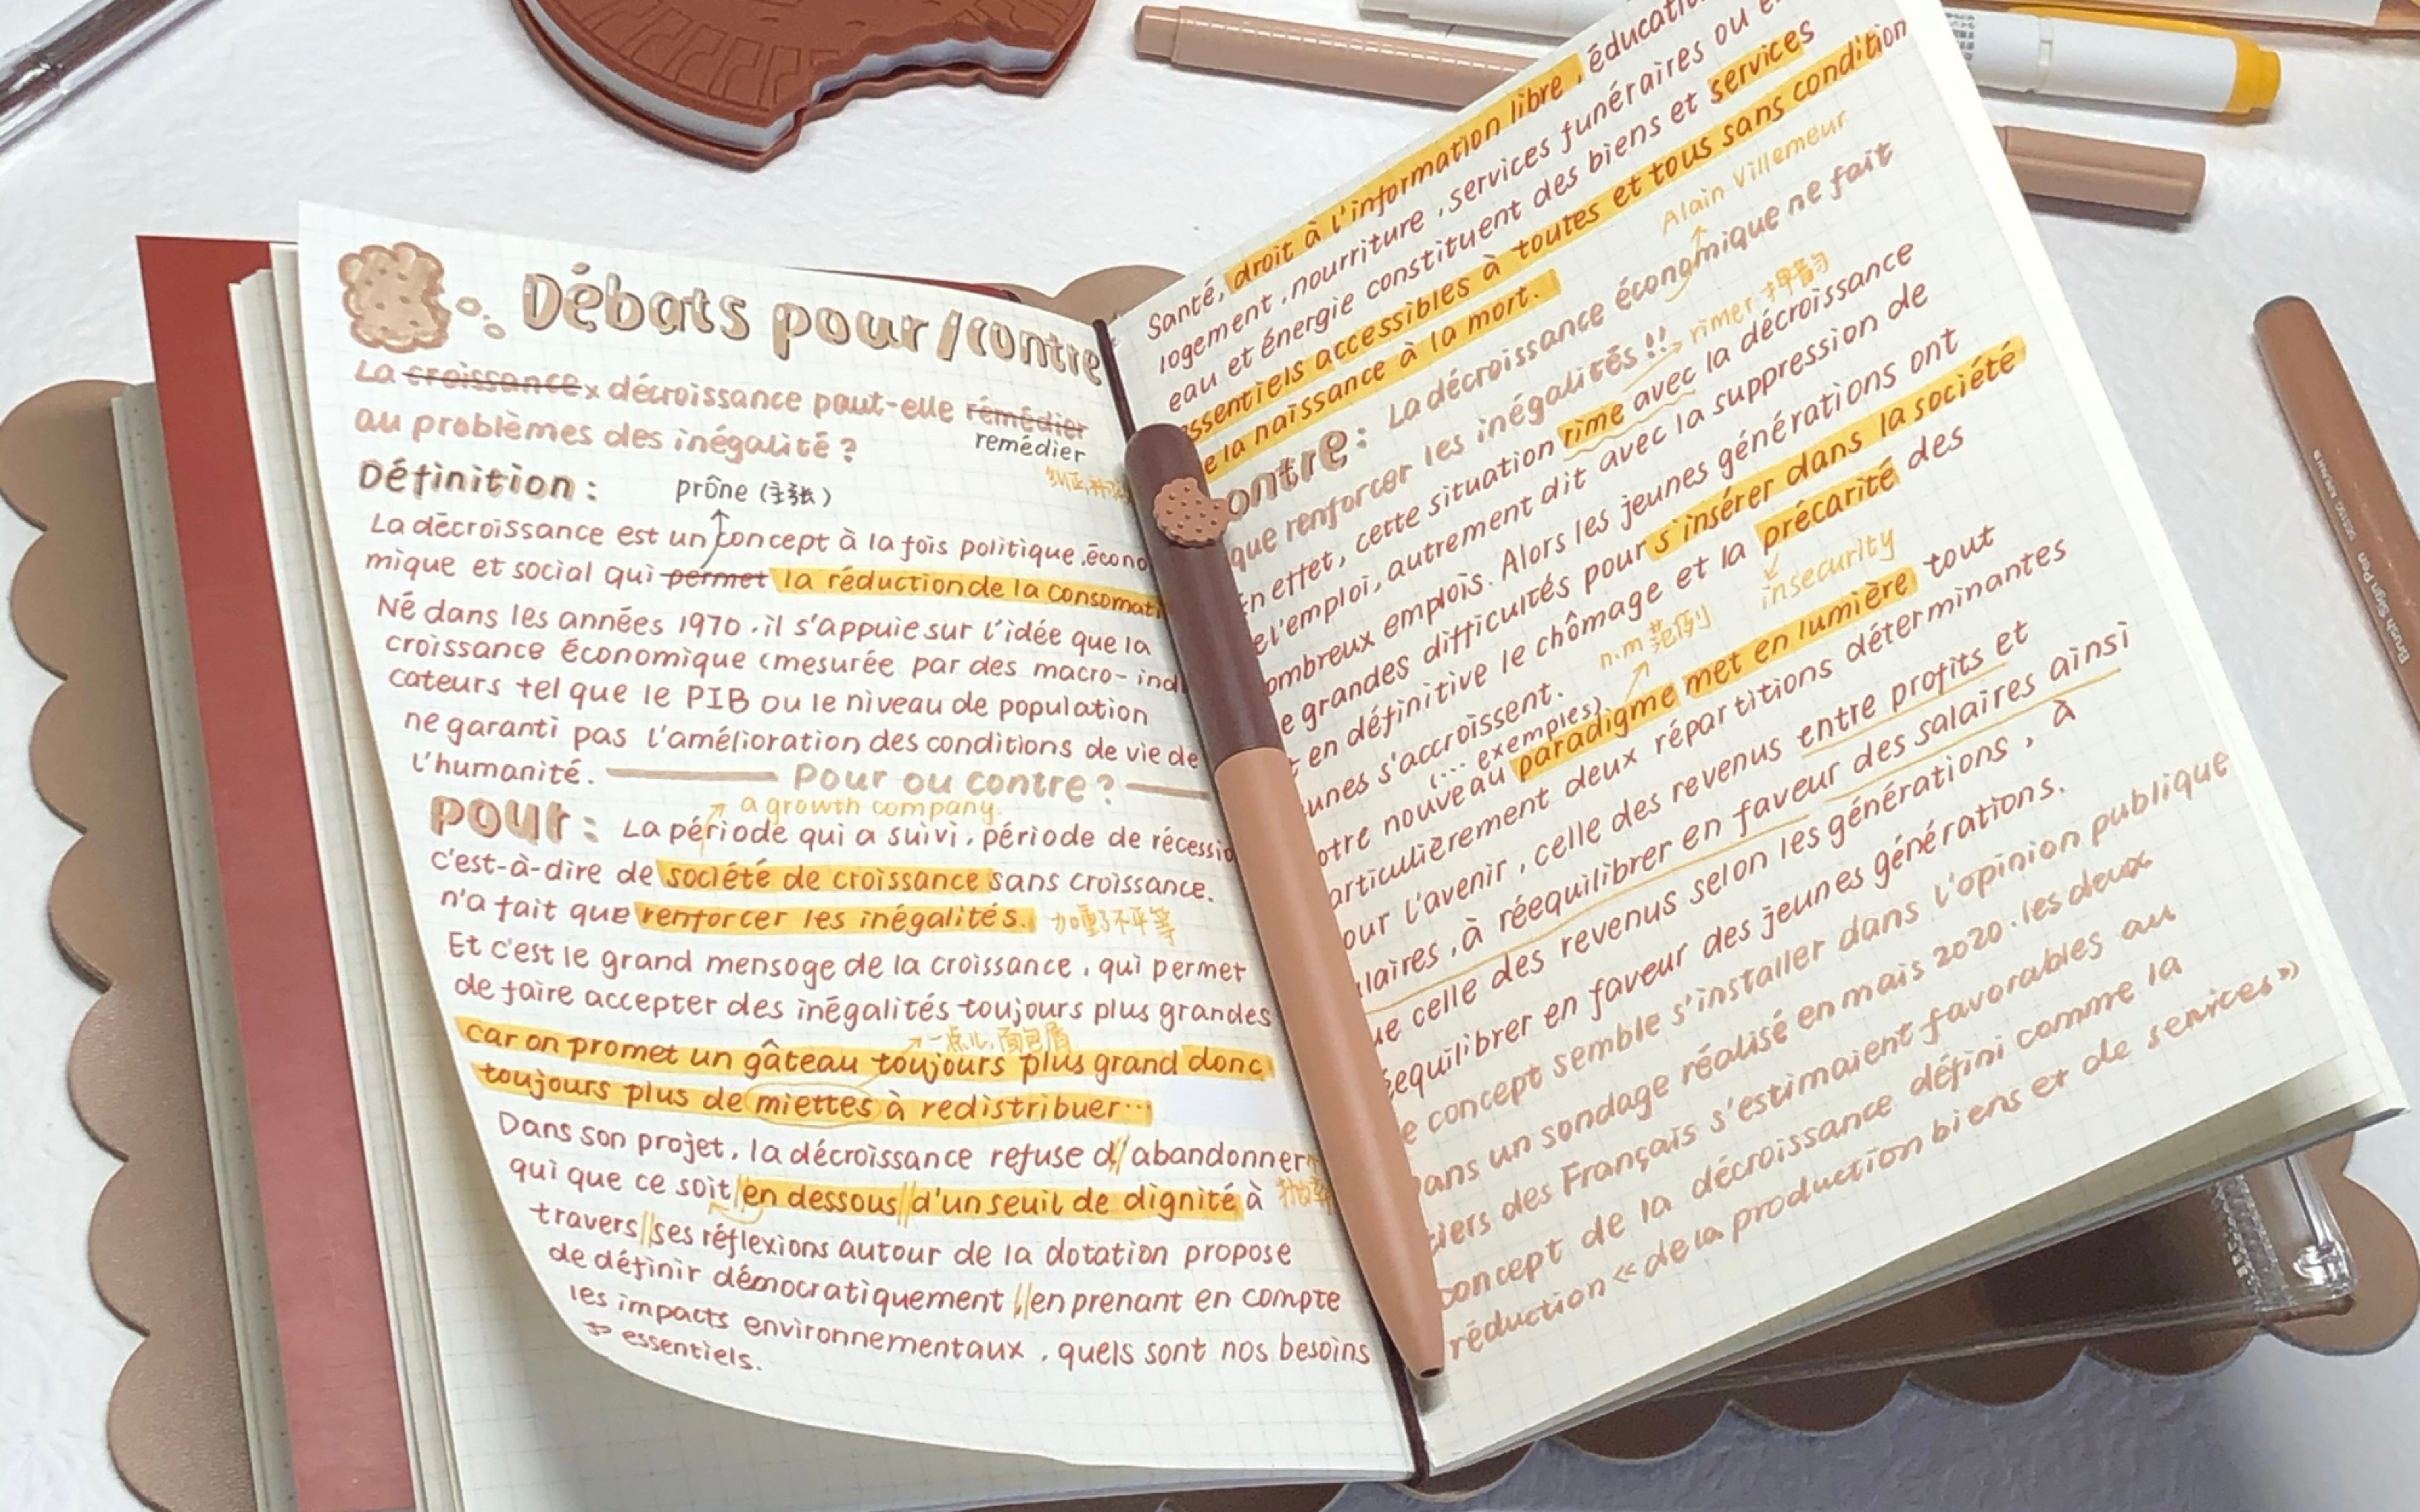 Débats pour/contre
La croissance x décroissance paut-elle rémédier
remédier
au problèmes des inégalité ?
Définition :
prône (主张)
La décroissance est un concept à la fois politique, écono
mique et social qui permet la réduction de la consomati
Né dans les années 1970, il s'appuie sur l'idée que la
croissance économique (mesurée par des macro-indi
cateurs tel que le PIB ou le niveau de population
ne garanti pas l'amélioration des conditions de vie de
l'humanité.
Pour ou contre ?
a growth company.
Pour : La période qui a suivi, période de récessio
c'est-à-dire de société de croissance sans croissance.
n'a fait que renforcer les inégalités. 加重了不平等
Et c'est le grand mensoge de la croissance, qui permet
de faire accepter des inégalités toujours plus grandes
一点儿, 面包屑
car on promet un gâteau toujours plus grand donc
toujours plus de miettes à redistribuer...
Dans son projet, la décroissance refuse d'/abandonner
qui que ce soit // en dessous // d'un seuil de dignité à
travers // ses réflexions autour de la dotation propose
de définir démocratiquement // en prenant en compte
les impacts environnementaux, quels sont nos besoins
essentiels.
Santé, droit à l'information libre, éducati
logement, nourriture, services funéraires ou
eau et énergie constituent des biens et services
ssentiels accessibles à toutes et tous sans condition
e la naissance à la mort.
Alain Villemeur
ontre : La décroissance économique ne fait
que renforcer les inégalités !!
rimer 押韵
En effet, cette situation rime avec la décroissance
e l'emploi, autrement dit avec la suppression de
ombreux emplois. Alors les jeunes générations ont
e grandes difficultés pour s'insérer dans la société
t en définitive le chômage et la précarité des
insecurity
unes s'accroissent.
(... exemples)
n.m 范例
otre nouveau paradigme met en lumière tout
articulièrement deux répartitions déterminantes
our l'avenir, celle des revenus entre profits et
laires, à réequilibrer en faveur des salaires ainsi
ue celle des revenus selon les générations, à
équilibrer en faveur des jeunes générations.
e concept semble s'installer dans l'opinion publique
ans un sondage réalisé en mais 2020, les deux
tiers des Français s'estimaient favorables au
concept de la décroissance défini comme la
réduction « de la production biens et de services »)
Brush Sign Pen